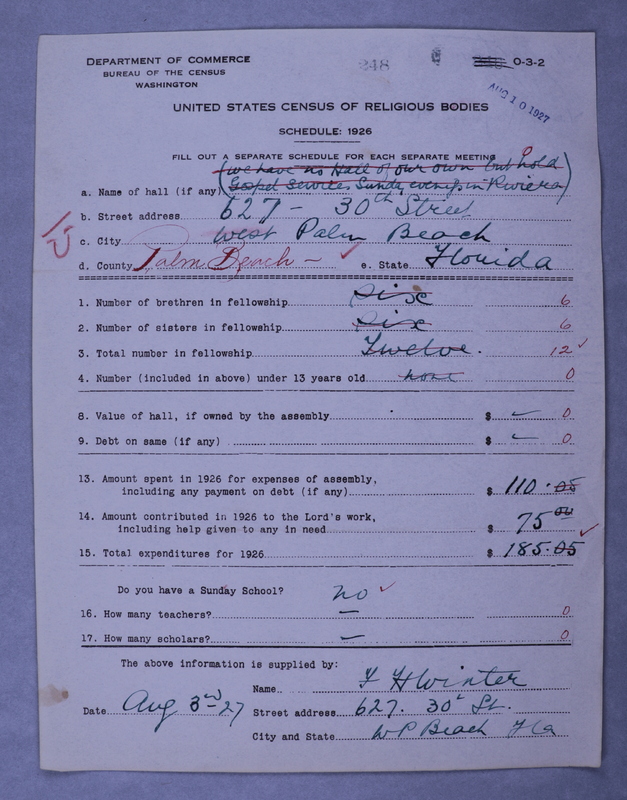 DEPARTMENT OF COMMERCE
BUREAU OF THE CENSUS
WASHINGTON
248
O-3-2
AUG 10 1927
UNITED STATES CENSUS OF RELIGIOUS BODIES
SCHEDULE: 1926
FILL OUT A SEPARATE SCHEDULE FOR EACH SEPARATE MEETING
(we have no Hall of our own but hold
a. Name of hall (if any) Gospel Services Sunday evenings in Riviera)
b. Street address 627 - 30th Street
c. City West Palm Beach
d. County Palm Beach - e. State Florida
1. Number of brethren in fellowship Six 6
2. Number of sisters in fellowship Six 6
3. Total number in fellowship Twelve. 12
4. Number (included in above) under 13 years old none 0
8. Value of hall, if owned by the assembly $ - 0
9. Debt on same (if any) $ - 0
13. Amount spent in 1926 for expenses of assembly,
including any payment on debt (if any) $ 110.05
14. Amount contributed in 1926 to the Lord's work,
including help given to any in need $ 75 00
15. Total expenditures for 1926 $ 185.05
Do you have a Sunday School? no
16. How many teachers? - 0
17. How many scholars? - 0
The above information is supplied by:
Name F H Winter
Date Aug 3rd 27 Street address 627. 30th St.
City and State W P Beach Fla